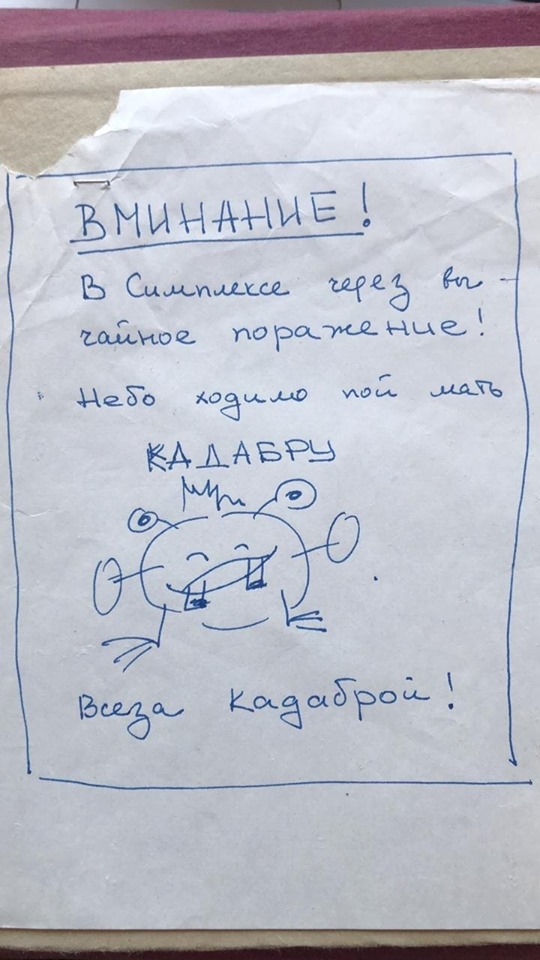 ВМИНАНИЕ!
В Симплексе через вы-
чайное поражение!
Небо ходимо пой мать
КАДАБРУ
Всеза кадаброй!